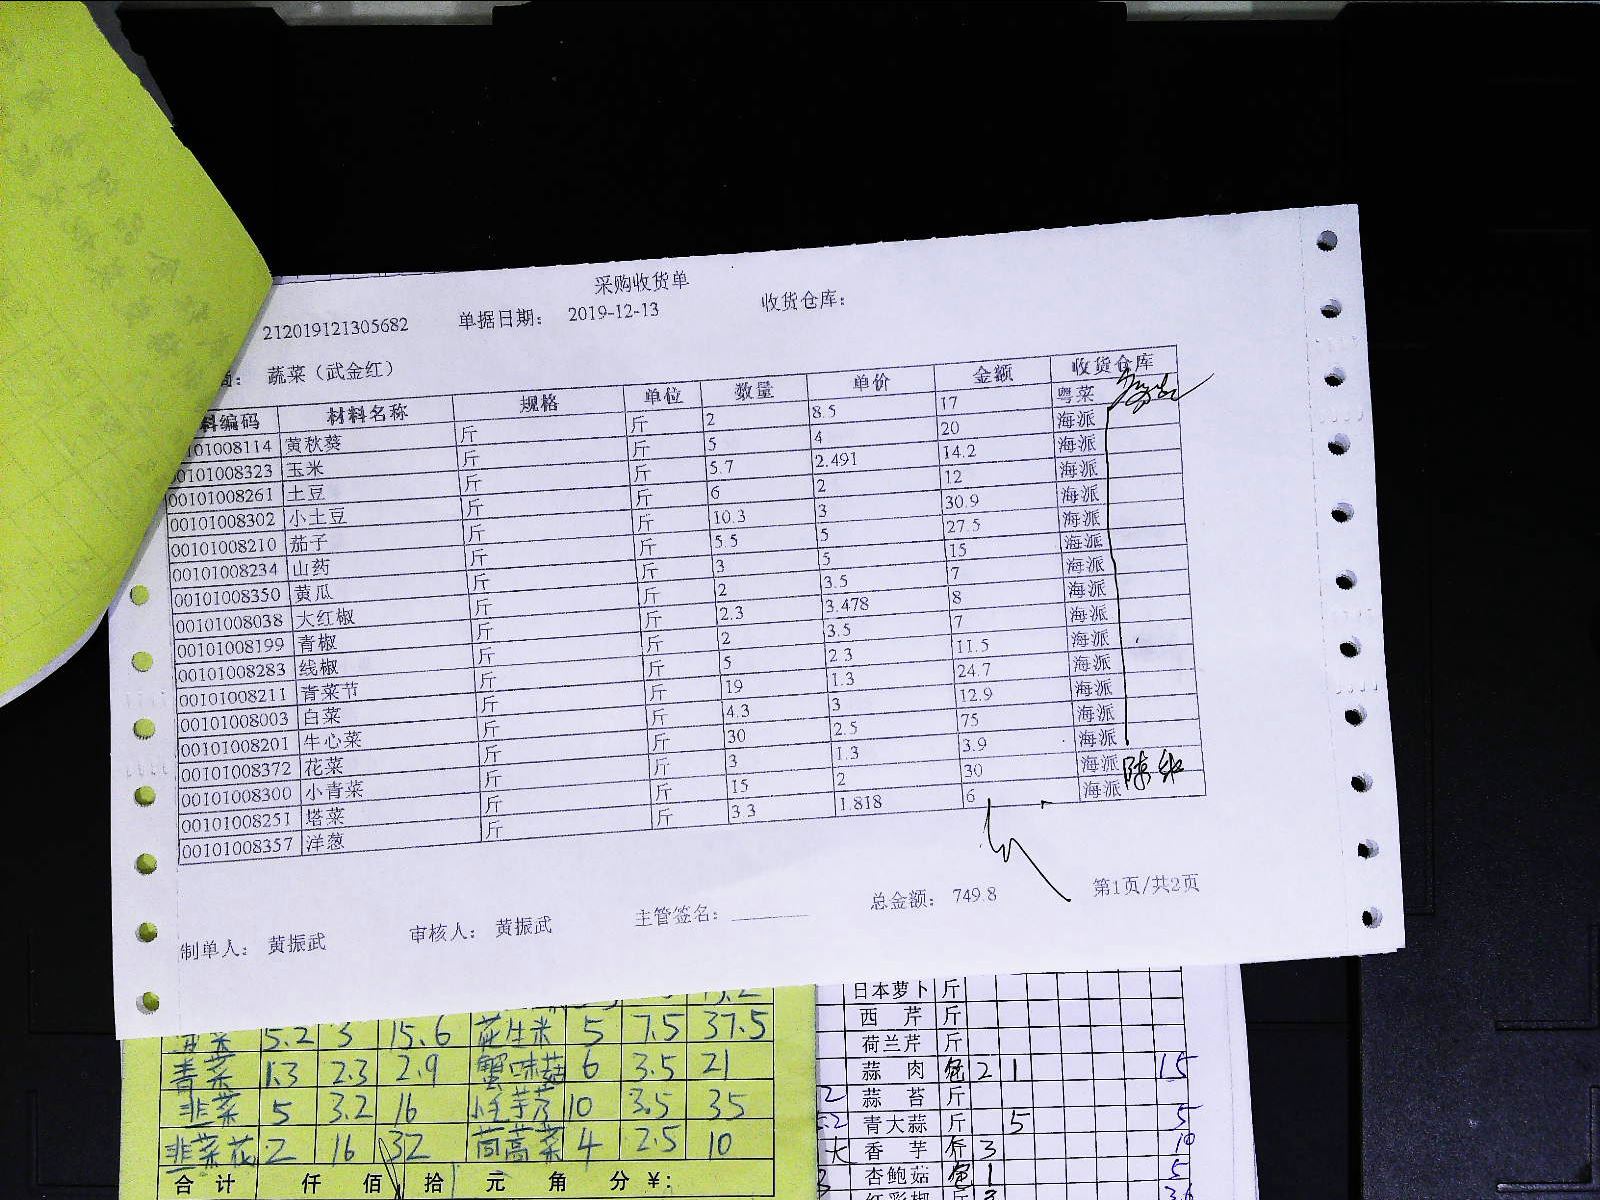 采购收货单
212019121305682 单据日期： 2019-12-13 收货仓库：
蔬菜（武金红）
料编码 材料名称 规格 单位 数量 单价 金额 收货仓库
0101008114 黄秋葵 斤 斤 2 8.5 17 粤菜
00101008323 玉米 斤 斤 5 4 20 海派
00101008261 土豆 斤 斤 5.7 2.491 14.2 海派
00101008302 小土豆 斤 斤 6 2 12 海派
00101008210 茄子 斤 斤 10.3 3 30.9 海派
00101008234 山药 斤 斤 5.5 5 27.5 海派
00101008350 黄瓜 斤 斤 3 5 15 海派
00101008038 大红椒 斤 斤 2 3.5 7 海派
00101008199 青椒 斤 斤 2.3 3.478 8 海派
00101008283 线椒 斤 斤 2 3.5 7 海派
00101008211 青菜节 斤 斤 5 2.3 11.5 海派
00101008003 白菜 斤 斤 19 1.3 24.7 海派
00101008201 牛心菜 斤 斤 4.3 3 12.9 海派
00101008372 花菜 斤 斤 30 2.5 75 海派
00101008300 小青菜 斤 斤 3 1.3 3.9 海派
00101008251 塔菜 斤 斤 15 2 30 海派
00101008357 洋葱 斤 斤 3.3 1.818 6 海派
制单人： 黄振武 审核人： 黄振武 主管签名： 总金额： 749.8 第1页/共2页
5.2 3 15.6 花生米 5 7.5 37.5
青菜 1.3 2.3 2.9 蟹味菇 6 3.5 21
韭菜 5 3.2 16 小芋艿 10 3.5 35
韭菜花 2 16 32 茼蒿菜 4 2.5 10
合计 仟 佰 拾 元 角 分 ¥:
日本萝卜 斤
西芹 斤
荷兰芹 斤
蒜肉 包 2 1 15
蒜苔 斤
青大蒜 斤 5 5
香芋 斤 3 10
杏鲍菇 包 1 5